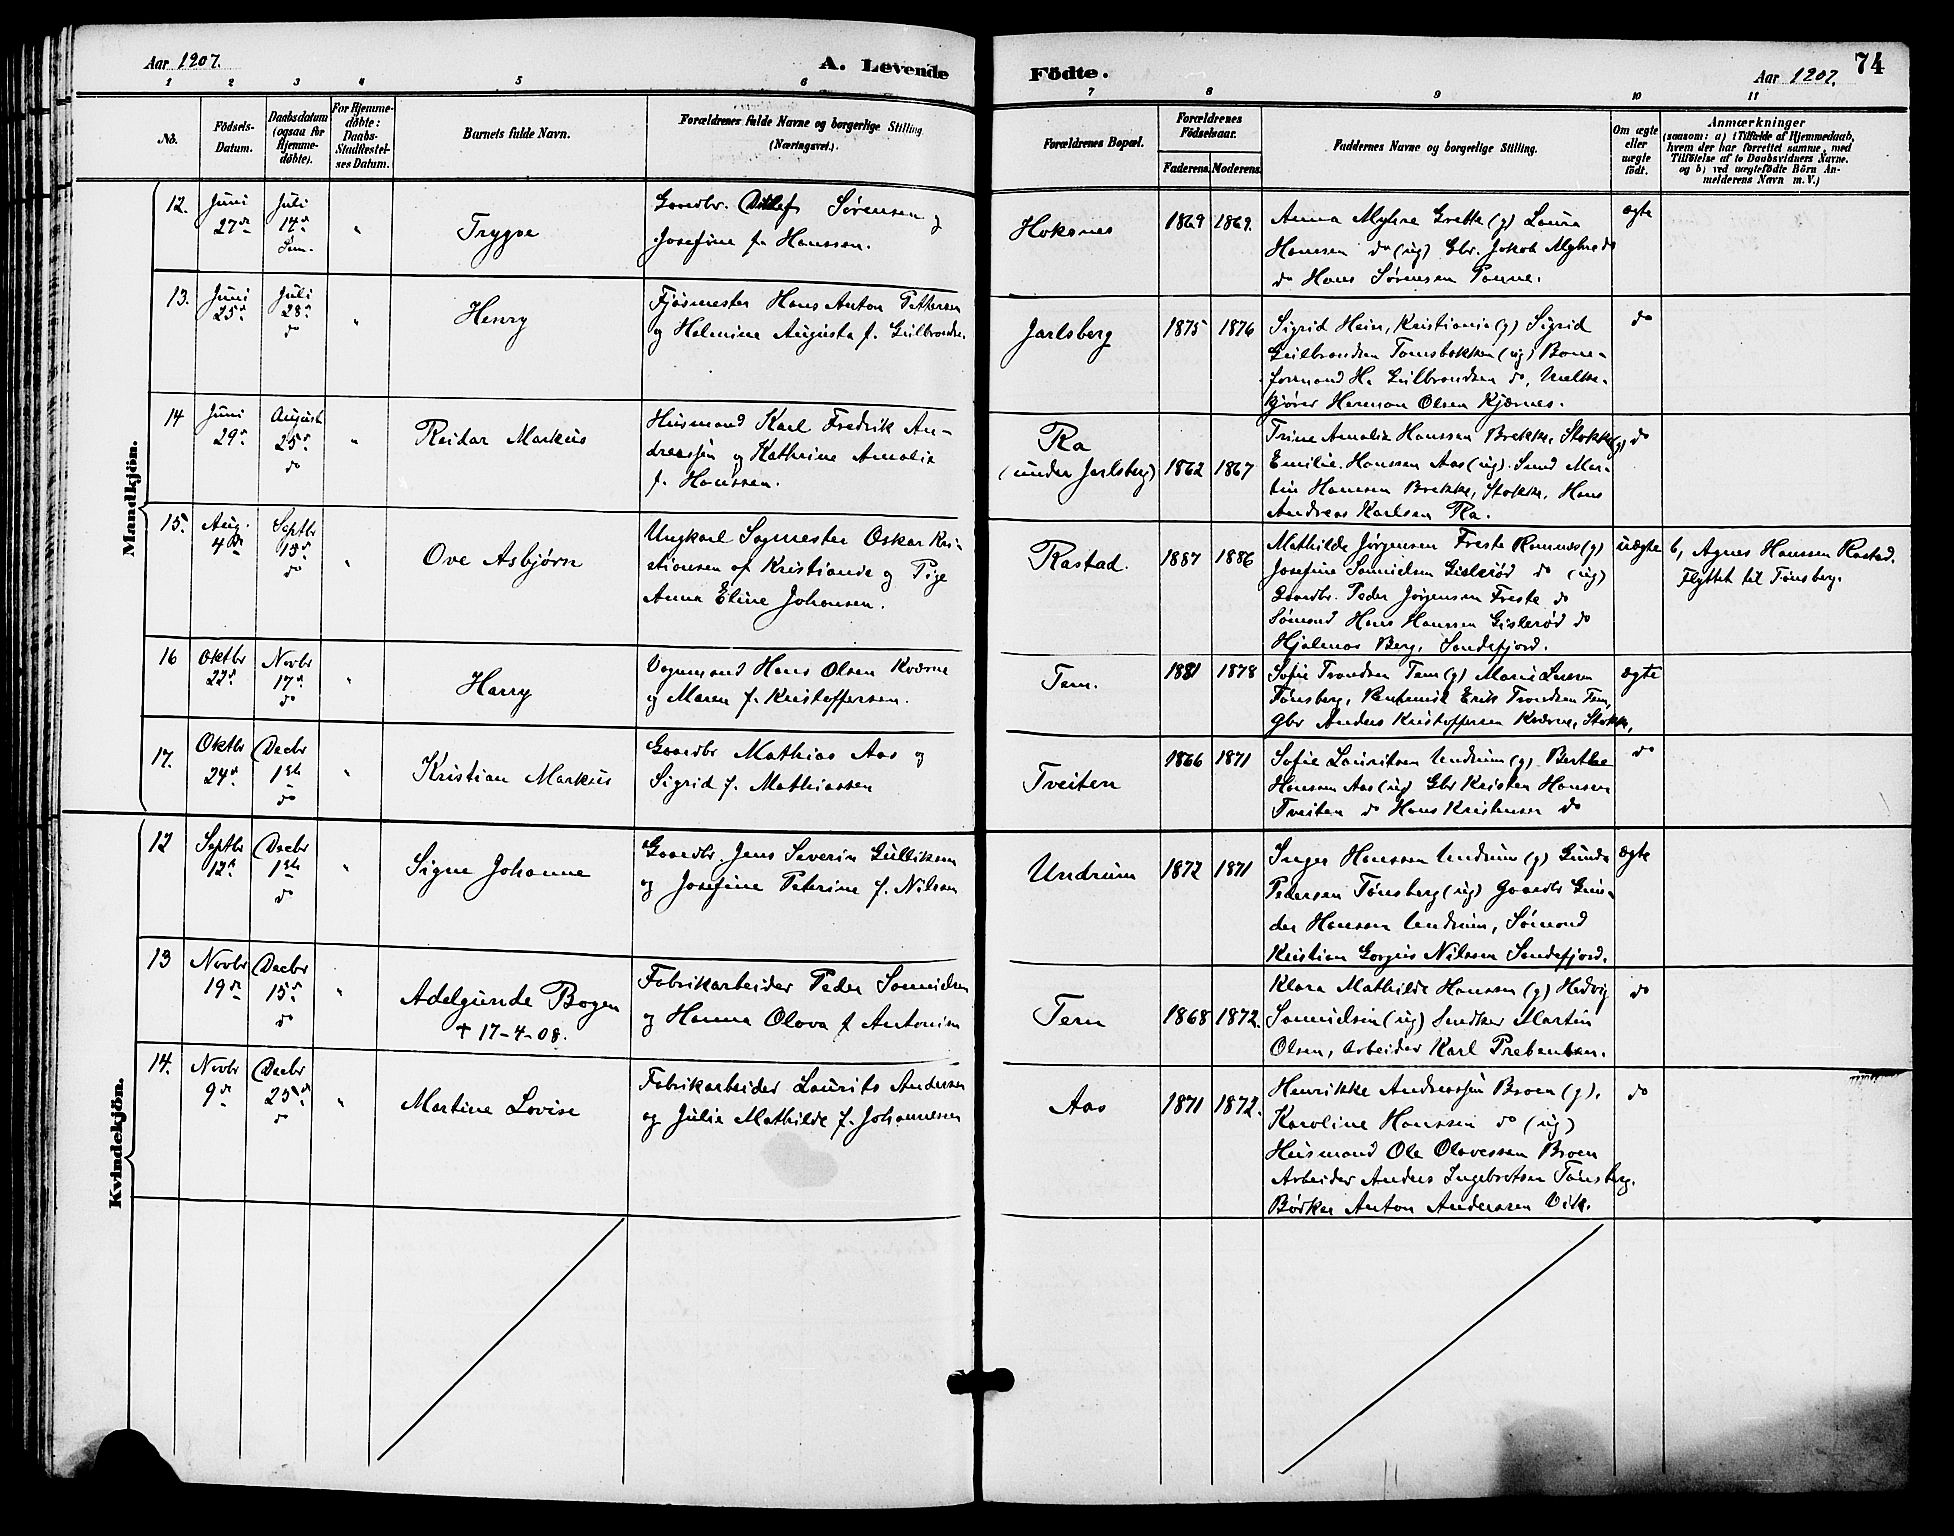 Aar 1907.
A. Levende
Födte.
Aar 1907.
74
1 2 3 4 5 6 7 8 9 10 11
No.
Födsels-
Datum.
Daabsdatum
(ogsaa for
Hjemme-
døbte).
For Hjemme-
døbte:
Daabs-
Stadfæstel-
ses Datum.
Barnets fulde Navn.
Forældrenes fulde Navne og borgerlige Stilling
(Næringsvei.).
Forældrenes Bopæl.
Forældrenes
Födselsaar.
Faderens. Moderens.
Faddernes Navne og borgerlige Stilling.
Om ægte
eller
uægte
født.
Anmærkninger
(saasom: a) i Tilfælde af Hjemmedaab,
hvem der har forrettet samme, med
Tilföielse af to Daabsvidners Navne.
og b) ved uægtefødte Börn An-
melderens Navn m. V.)
Mandkjön.
12.
Juni
27de
Juli
14de
Sem.
"
Trygve
Gaardbr. Ditlef Sørensen og
Josefine f. Hanssen.
Hoksnes
1869 1869.
Anna Myhre Grette (g) Laura
Hanssen do (ug) Gbr. Jakob Myhre do
do Hans Sørensen
ægte
13.
Juni
25de
Juli
28de
do
"
Henry
Fjøsmester Hans Anton Pettersen
og Helmine Augusta f. Gulbrandsen.
Jarlsberg
1875 1876
Sigrid Hein, Kristiania (g) Sigrid
Gulbrandsen Tomsbakken (ug) Bane-
formand H. Gulbrandsen do, Melke-
kjører Herman Olsen Kjærnes.
do
14
Juni
29de
August
25de
do
"
Reidar Markus
Husmand Karl Fredrik An-
dreassen og Kathrine Amalie
f. Hanssen.
Ra
(under Jarlsberg)
1862 1867
Trine Amalie Hanssen Brekke, Stokke (g)
Emilie Hanssen Aas (ug). Smed Mar-
tin Hansen Brekke, Stokke. Hans
Andreas Karlsen Ra.
do
15.
Aug.
4de
Septbr
15de
do
"
Ove Asbjørn
Ungkarl Sagmester Oskar Kri-
stiansen af Kristiania og Pige
Anna Eline Johansen.
Rastad.
1887 1886
Mathilde Jørgensen Freste Ramnes (g)
Josefine Samuelsen Gislerød do (ug)
Gaardbr. Peder Jørgensen Freste do
Sømand Hans Hanssen Gislerød do
Hjalmar Berg, Sandefjord.
uægte
b, Agnes Hanssen Rastad.
Flyttet til Tønsberg.
16
Oktbr
22de
Novbr
17de
do
"
Harry
Vognmand Hans Olsen Kværne
og Maren f. Kristoffersen.
Tem.
1881 1878
Sofie Trondsen Tem (g) Marie Larsen
Tønsberg, Pantemsk Erik Trondsen Tem,
Gbr Anders Kristoffersen Kværne, Stokke,
ægte
17.
Oktbr
24de
Decbr
1ste
do
"
Kristian Markus
Gaardbr Mathias Aas og
Sigrid f. Mathiassen
Tveiten
1866 1871
Sofie Lauritsen Undrum (g). Berthe
Hanssen Aas (ug) Gbr Kristen Hansen
Tveiten do Hans Kristensen do
do
Kvindekjön.
12
Septbr
12te
Decbr
1ste
do
"
Signe Johanne
Gaardbr. Jens Severin Gulliksen
og Josefine Peterine f. Nilsen
Undrum
1872 1871
Inger Hanssen Undrum (g) Gunda
Pedersen Tønsberg (ug) Gaardbr Gun-
der Hanssen Undrum, Sømand
Kristian Gorgius Nilssen Sandefjord.
ægte
13
Novbr
19de
Decbr
15de
do
"
Adelgunde Bogen
+ 17-4-08.
Fabrikarbeider Peder Samuelsen
og Hanna Olava f Antonisen
Tem
1868 1872.
Klara Mathilde Hanssen (g) Hedvig
Samuelsen (ug) Snedker Martin
Olsen, Arbeider Karl Prebensen.
do
14.
Novbr
9de
Decbr
25de
do
"
Martine Lovise
Fabrikarbeider Laurits Andersen
og Julie Mathilde f. Johannessen
Aas
1871 1872.
Henrikke Andreassen Broen (g),
Karoline Hanssen do (ug)
Husmand Ole Olavessen Broen
Arbeider Anders Ingebretsen Tønsberg.
Bødker Anton Anderssen Vik.
do